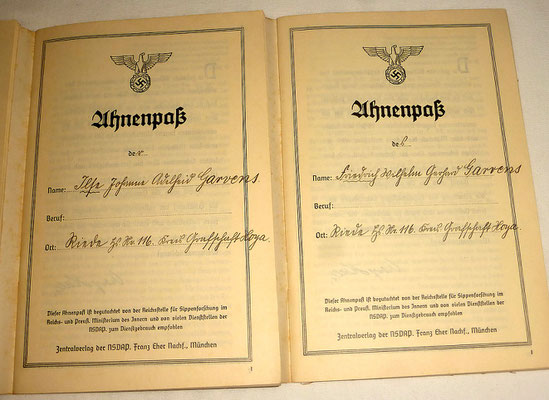 Ahnenpaß
der
Name: Ilse Johanne Adelheid Garvens
Beruf:
Ort: Riede Hs Nr. 116. Kreis Grafschaft Hoya.
Dieser Ahnenpaß ist begutachtet von der Reichsstelle für Sippenforschung im
Reichs- und Preuß. Ministerium des Innern und von vielen Dienststellen der
NSDAP. zum Dienstgebrauch empfohlen
Zentralverlag der NSDAP. Franz Eher Nachf., München
1
Ahnenpaß
des
Name: Friedrich Wilhelm Gerhard Garvens
Beruf:
Ort: Riede Hs Nr. 116. Kreis Grafschaft Hoya.
Dieser Ahnenpaß ist begutachtet von der Reichsstelle für Sippenforschung im
Reichs- und Preuß. Ministerium des Innern und von vielen Dienststellen der
NSDAP. zum Dienstgebrauch empfohlen
Zentralverlag der NSDAP. Franz Eher Nachf., München
1